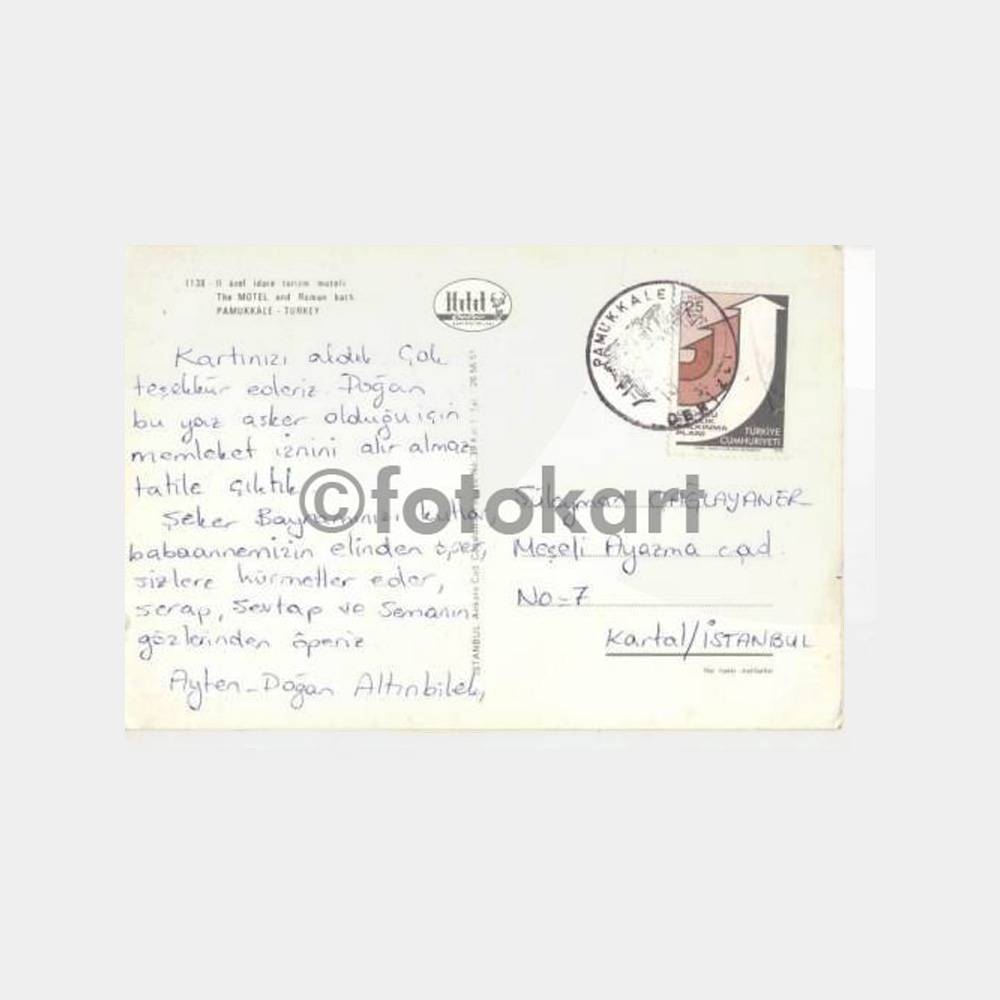 1138 - İl özel idare turizm moteli
The MOTEL and Roman bath
PAMUKKALE - TURKEY
Kartınızı aldık Çok
teşekkür ederiz. Doğan
bu yaz asker olduğu için
memleket iznini alır almaz
tatile çıktık
Şeker Bayramınızı kutlar,
babaannemizin elinden öper,
sizlere hürmetler eder,
Serap, Sevtap ve Semanın
gözlerinden öperiz
Ayten-Doğan Altınbilek,
İSTANBUL Ankara Cad.
PAMUKKALE
25
PLANI
TÜRKİYE
CUMHURİYETİ
©fotokart
Süleyman ÇAĞLAYANER
Meşeli Ayazma cad.
No=7
Kartal/İSTANBUL
Her hakkı mahfuzdur